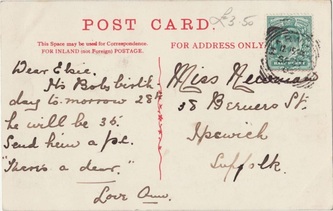 POST CARD.
£3.50
This Space may be used for Correspondence.
FOR INLAND (not Foreign) POSTAGE.
FOR ADDRESS ONLY
Dear Elsie.
Its Bobs birth-
day to-morrow 28th
he will be 36.
Send him a p.c.
"There's a dear."
Love Ann.
Miss Newman
58 Berners St.
Ipswich
Suffolk.